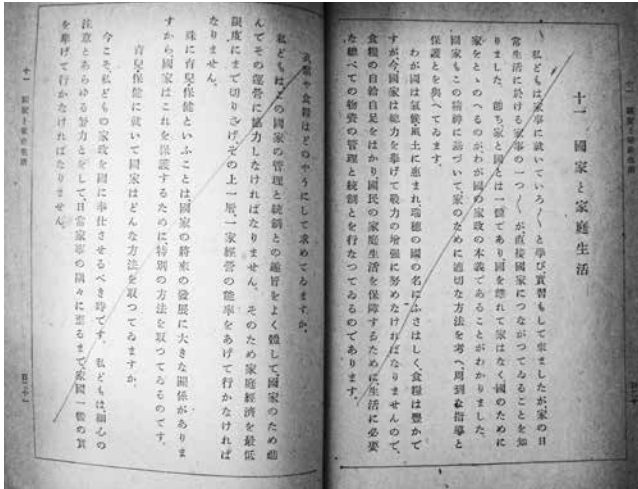 十一 國家と家庭生活
私どもは家事に就いていろ〱と學び實習もして來ましたが、家の日
常生活に於ける家事の一つ〱が、直接國家につながつてゐることを知
りました。卽ち家と國とは一體であり國を離れて家はなく國のために
家をとゝのへるのがわが國の家政の本義であることがわかりました。
國家もこの精神に基づいて家のために適切な方法を考へ、周到な指導と
保護とを與へてゐます。
わが國は氣候・風土に惠まれ、瑞穗の國の名にふさはしく、食糧は豐かで
すが今國家は總力を擧げて戰力の增強に努めなければなりませんので、
食糧の自給自足をはかり國民の家庭生活を保障するために、生活に必要
な總べての物資の管理と統制とを行なつてゐるのであります。
衣類や食糧はどのやうにして求めてゐますか。
私どもは、この國家の管理と統制との趣旨をよく體して、國家のため進
んでその運營に協力しなければなりません。そのため家庭經濟を最低
限度にまで切りさげ、その上一層一家經營の能率をあげて行かなければ
なりません。
殊に育兒保健といふことは、國家の將來の發展に大きな關係がありま
すから國家はこれを保護するために、特別の方法を取つてゐるのです。
育兒保健に就いて國家はどんな方法を取つてゐますか。
今こそ、私どもの家政を國に奉仕させるべき時です。私どもは、細心の
注意とあらゆる努力とをして、日常家事の隅々に至るまで、家國一體の實
を擧げて行かなければなりません。
十一 國家と家庭生活
百二十一